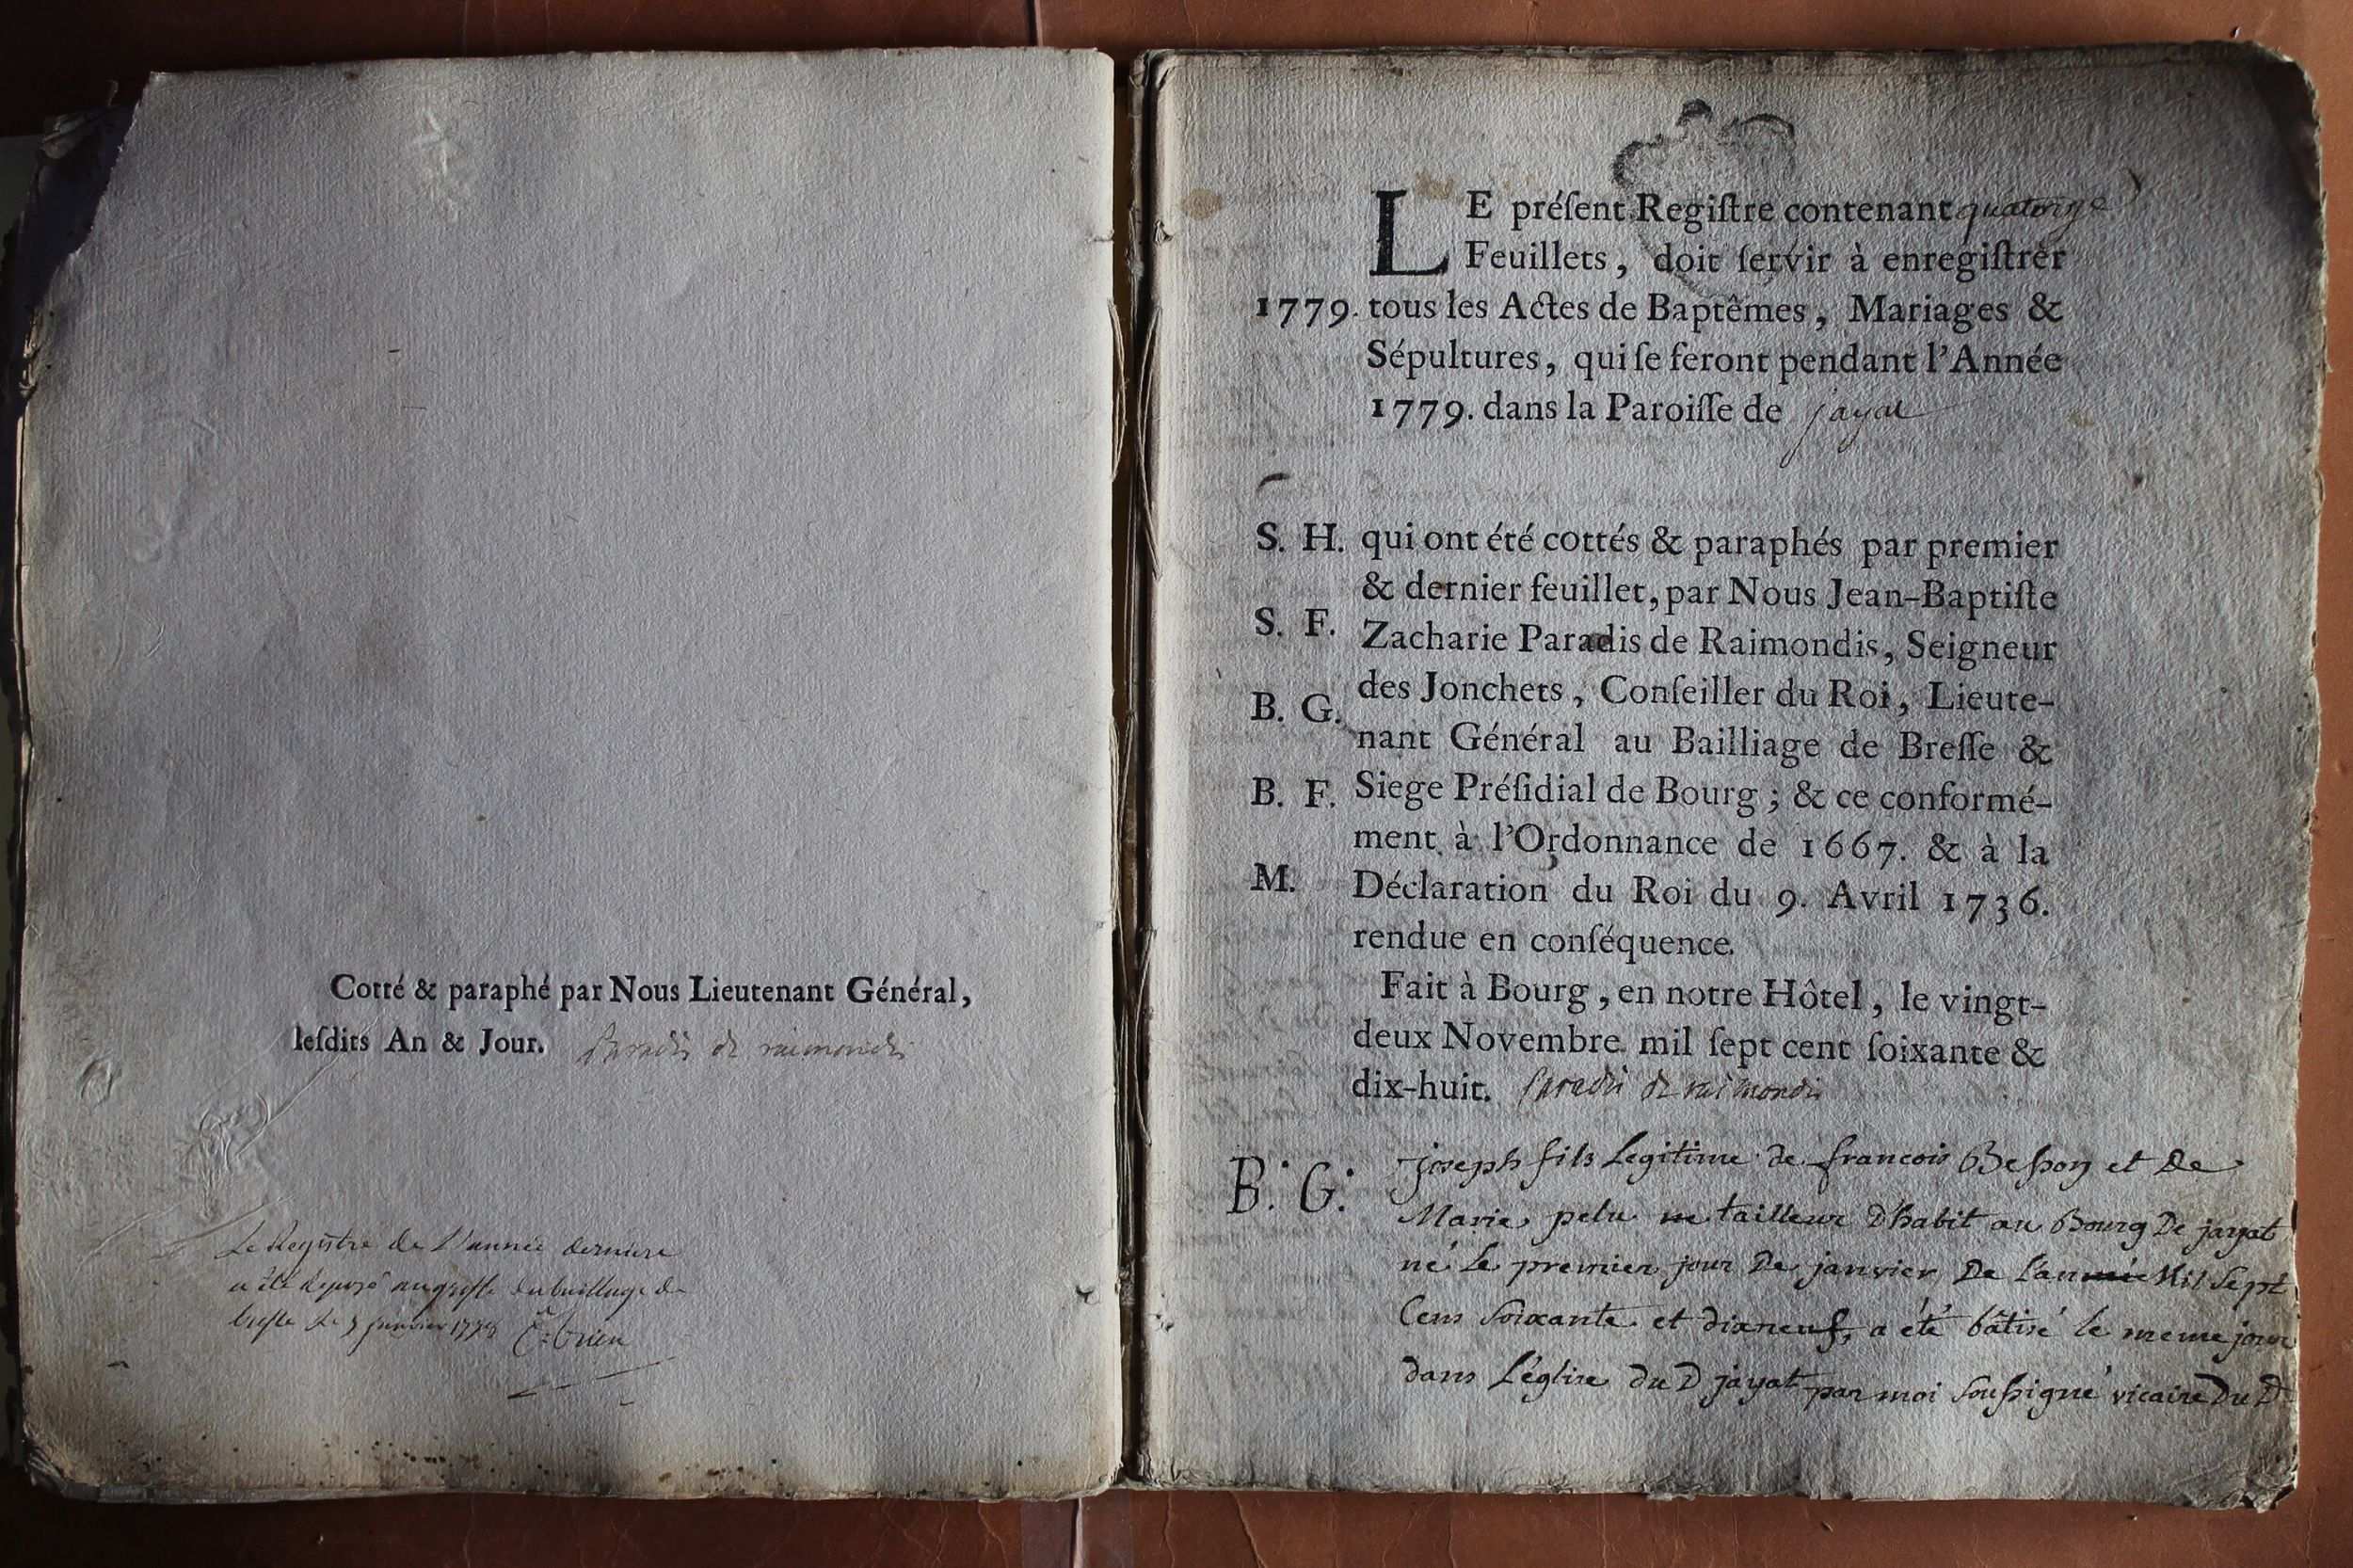 Cotté & paraphé par Nous Lieutenant Général,
leſdits An & Jour. Paradis de raimondis
Le Registre de L'année derniere
a été deposé au greffe du bailliage de
bresse le janvier 1779
LE préſent Regiſtre contenant quatorze
Feuillets, doit ſervir à enregiſtrer
1779. tous les Actes de Baptêmes, Mariages &
Sépultures, qui ſe feront pendant l'Année
1779. dans la Paroiſſe de jayat
S. H. qui ont été cottés & paraphés par premier
& dernier feuillet, par Nous Jean-Baptiſte
S. F. Zacharie Paradis de Raimondis, Seigneur
des Jonchets, Conſeiller du Roi, Lieute-
B. G. nant Général au Bailliage de Breſſe &
B. F. Siege Préſidial de Bourg ; & ce conformé-
ment à l'Ordonnance de 1667. & à la
M. Déclaration du Roi du 9. Avril 1736.
rendue en conſéquence.
Fait à Bourg, en notre Hôtel, le vingt-
deux Novembre mil ſept cent ſoixante &
dix-huit. Paradis de raimondis
B. G. joseph fils Legitime de francois Beſson et De
Marie pelu tailleur D'habit au Bourg De jayat
né Le premier jour De janvier De L'année Mil Sept
Cens Soixante et dixneuf, a été bâtisé le meme jour
dans L'églire du D jayat par moi Souſsigné vicaire Du D